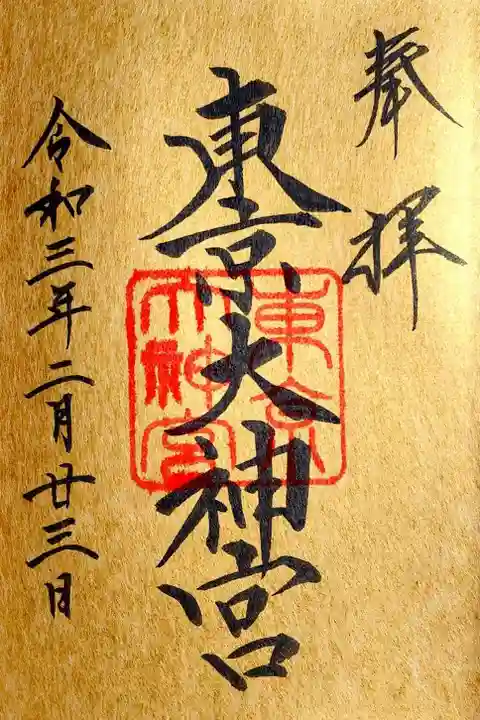 奉拝
東京大神宮
東京
大神宮
令和三年二月廿三日